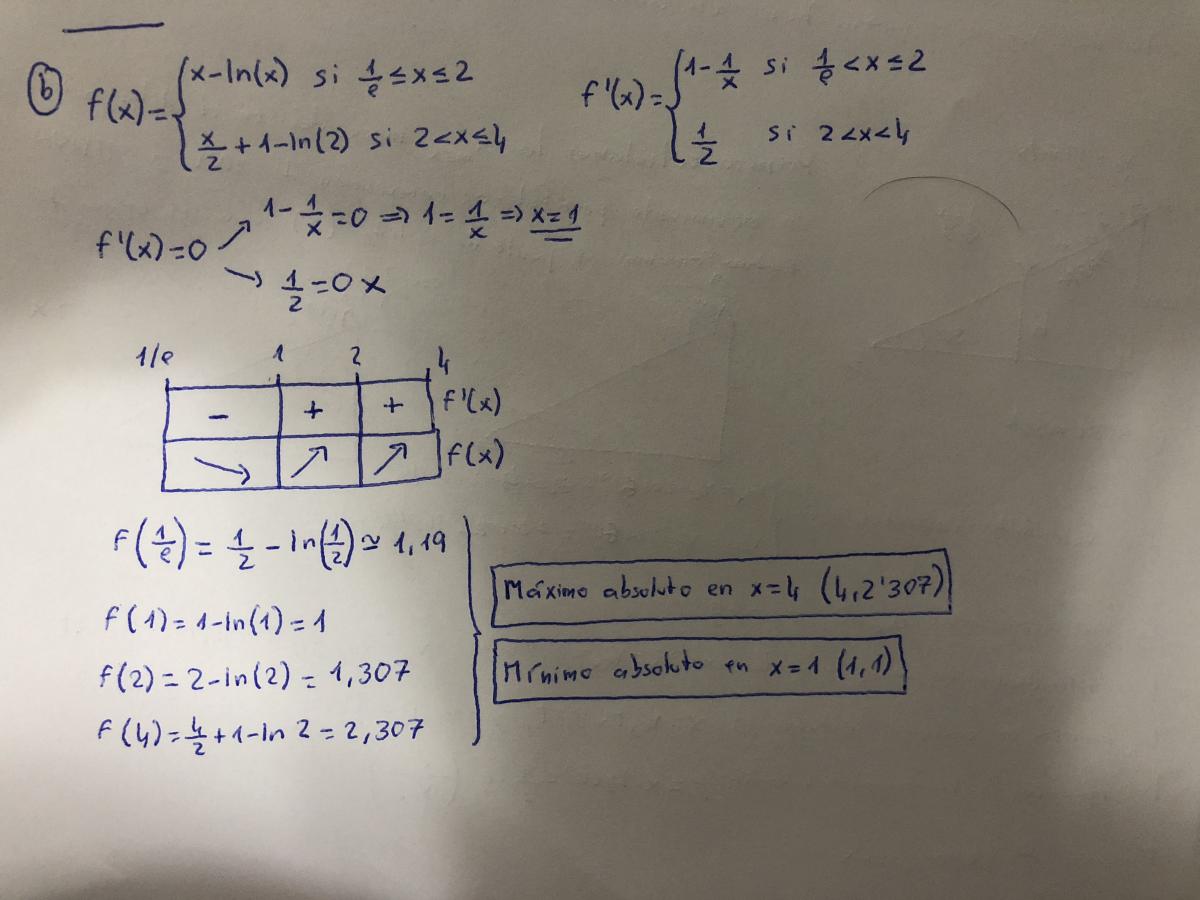 b f(x) = { x - ln(x) si 1/e ≤ x ≤ 2
x/2 + 1 - ln(2) si 2 < x ≤ 4
f'(x) = { 1 - 1/x si 1/e < x ≤ 2
1/2 si 2 < x < 4
f'(x) = 0 ↗ 1 - 1/x = 0 ⇒ 1 = 1/x ⇒ x = 1
↘ 1/2 = 0 x
1/e 1 2 4
- + + f'(x)
↘ ↗ ↗ f(x)
f(1/e) = 1/2 - ln(1/2) ≃ 1,19
f(1) = 1 - ln(1) = 1
f(2) = 2 - ln(2) = 1,307
f(4) = 4/2 + 1 - ln 2 = 2,307
Máximo absoluto en x = 4 (4, 2'307)
Mínimo absoluto en x = 1 (1, 1)